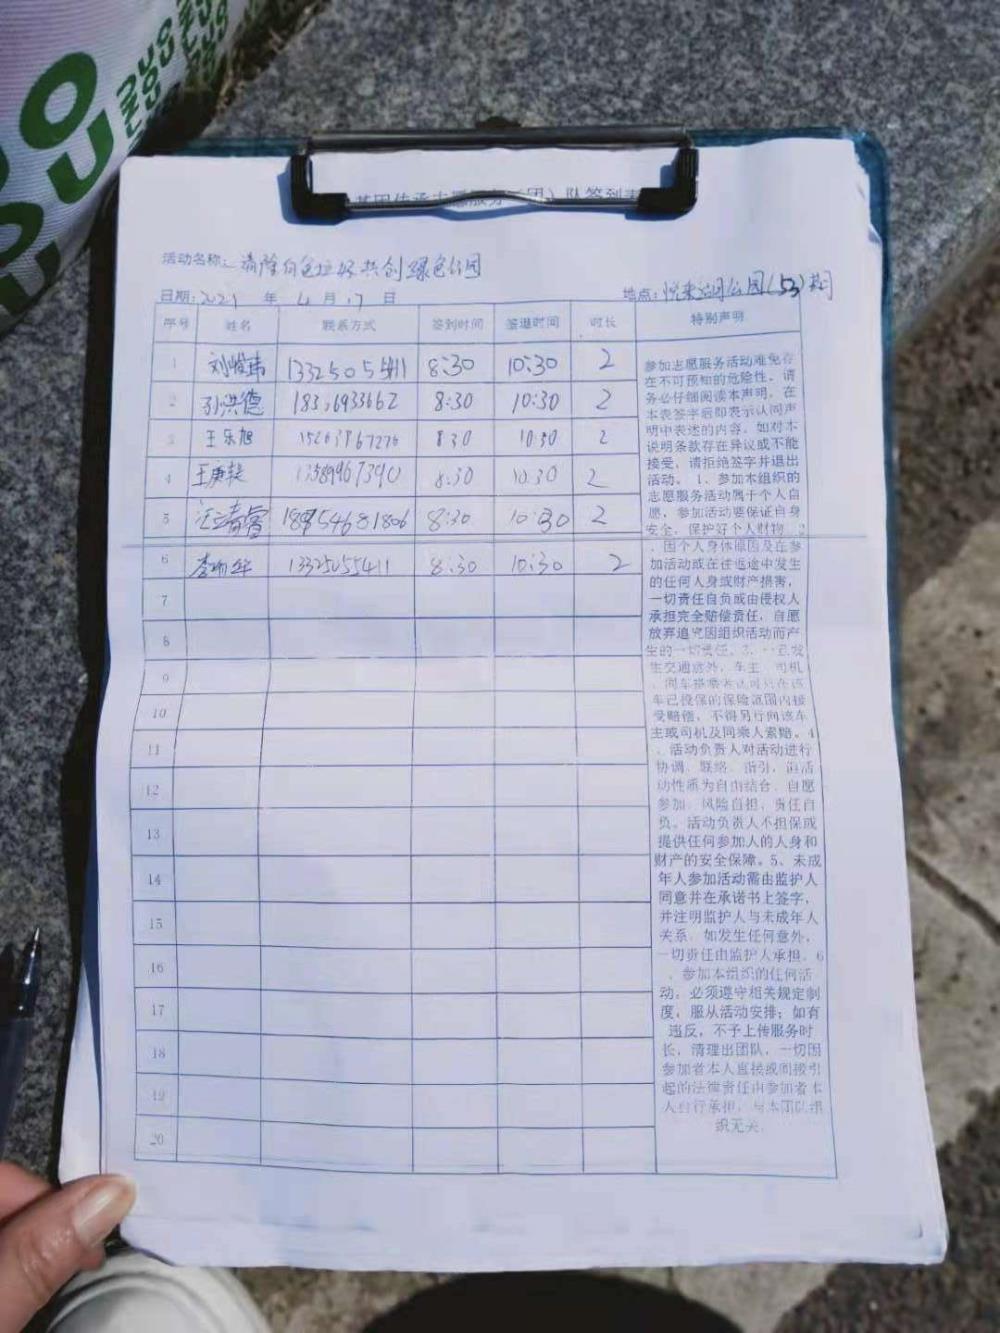 基因传承志愿服务(团)队签到表
活动名称: 清除白色垃圾共创绿色公园
日期: 2021 年 4 月 17 日 地点: 公园(53)期
序号 姓名 联系方式 签到时间 签退时间 时长 特别声明
1 刘 13325055411 8:30 10:30 2
2 孙洪德 8:30 10:30 2
3 王乐旭 15263867276 8:30 10:30 2
4 王庚 13589967390 8:30 10:30 2
5 18954681806 8:30 10:30 2
6 李 13325055411 8:30 10:30 2
7
8
9
10
11
12
13
14
15
16
17
18
19
20
参加志愿服务活动难免存
在不可预知的危险性, 请
务必仔细阅读本声明, 在
本表签字后即表示认同声
明中表述的内容。如对本
说明条款存在异议或不能
接受, 请拒绝签字并退出
活动。1、参加本组织的
志愿服务活动属于个人自
愿, 参加活动要保证自身
安全, 保护好个人财物。2
、因个人身体原因及在参
加活动或在往返途中发生
的任何人身或财产损害,
一切责任自负或由侵权人
承担完全赔偿责任, 自愿
放弃追究因组织活动而产
生的一切责任。3、一旦发
生交通意外, 车主、司机
、同车搭乘者达可只在该
车已投保的保险范围内接
受赔偿, 不得另行向该车
主或司机及同乘人索赔。4
、活动负责人对活动进行
协调、联络、指引, 但活
动性质为自由结合, 自愿
参加、风险自担、责任自
负。活动负责人不担保或
提供任何参加人的人身和
财产的安全保障。5、未成
年人参加活动需由监护人
同意并在承诺书上签字,
并注明监护人与未成年人
关系, 如发生任何意外,
一切责任由监护人承担。6
、参加本组织的任何活
动, 必须遵守相关规定制
度, 服从活动安排; 如有
违反, 不予上传服务时
长, 清理出团队, 一切因
参加者本人直接或间接引
起的法律责任由参加者本
人自行承担, 与本团队组
织无关。